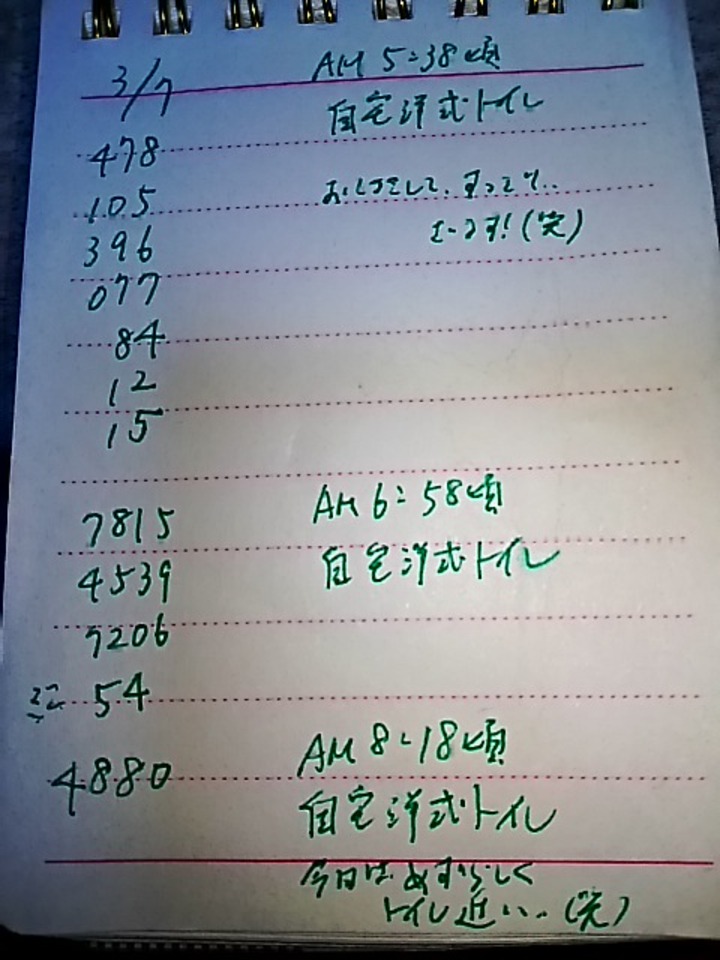 3/7 AM 5:38頃
自宅洋式トイレ
478
105
396
077
84
12
15
7815 AM 6:58頃
4539 自宅洋式トイレ
7206
ミニ 54
4880 AM 8:18頃
自宅洋式トイレ
今日はめずらしく
トイレ近い..(笑)